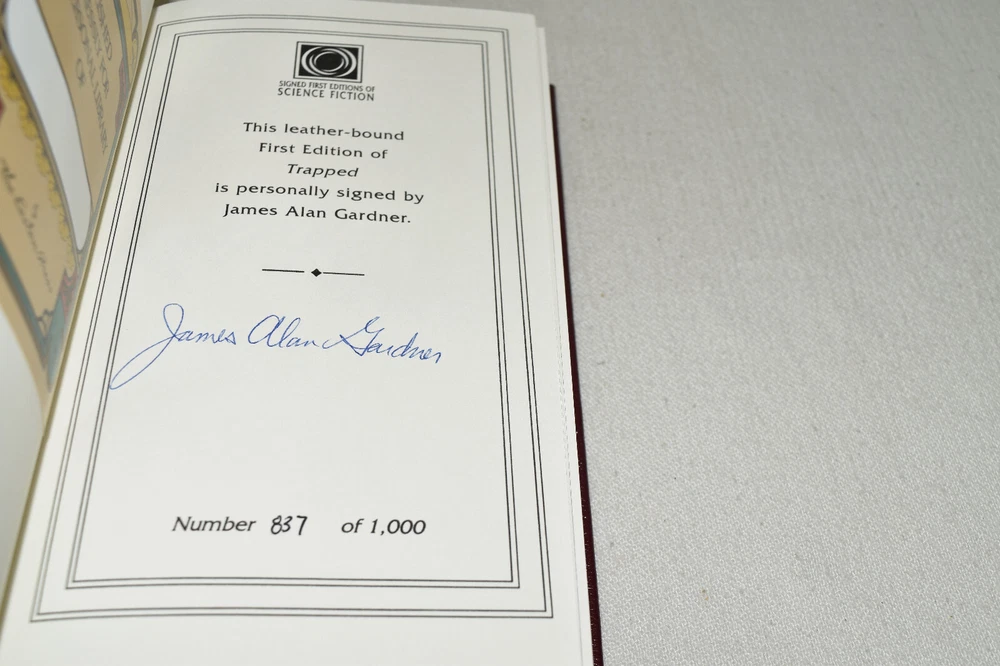 SIGNED FIRST EDITIONS OF
SCIENCE FICTION
This leather-bound
First Edition of
Trapped
is personally signed by
James Alan Gardner.
James Alan Gardner
Number 837 of 1,000